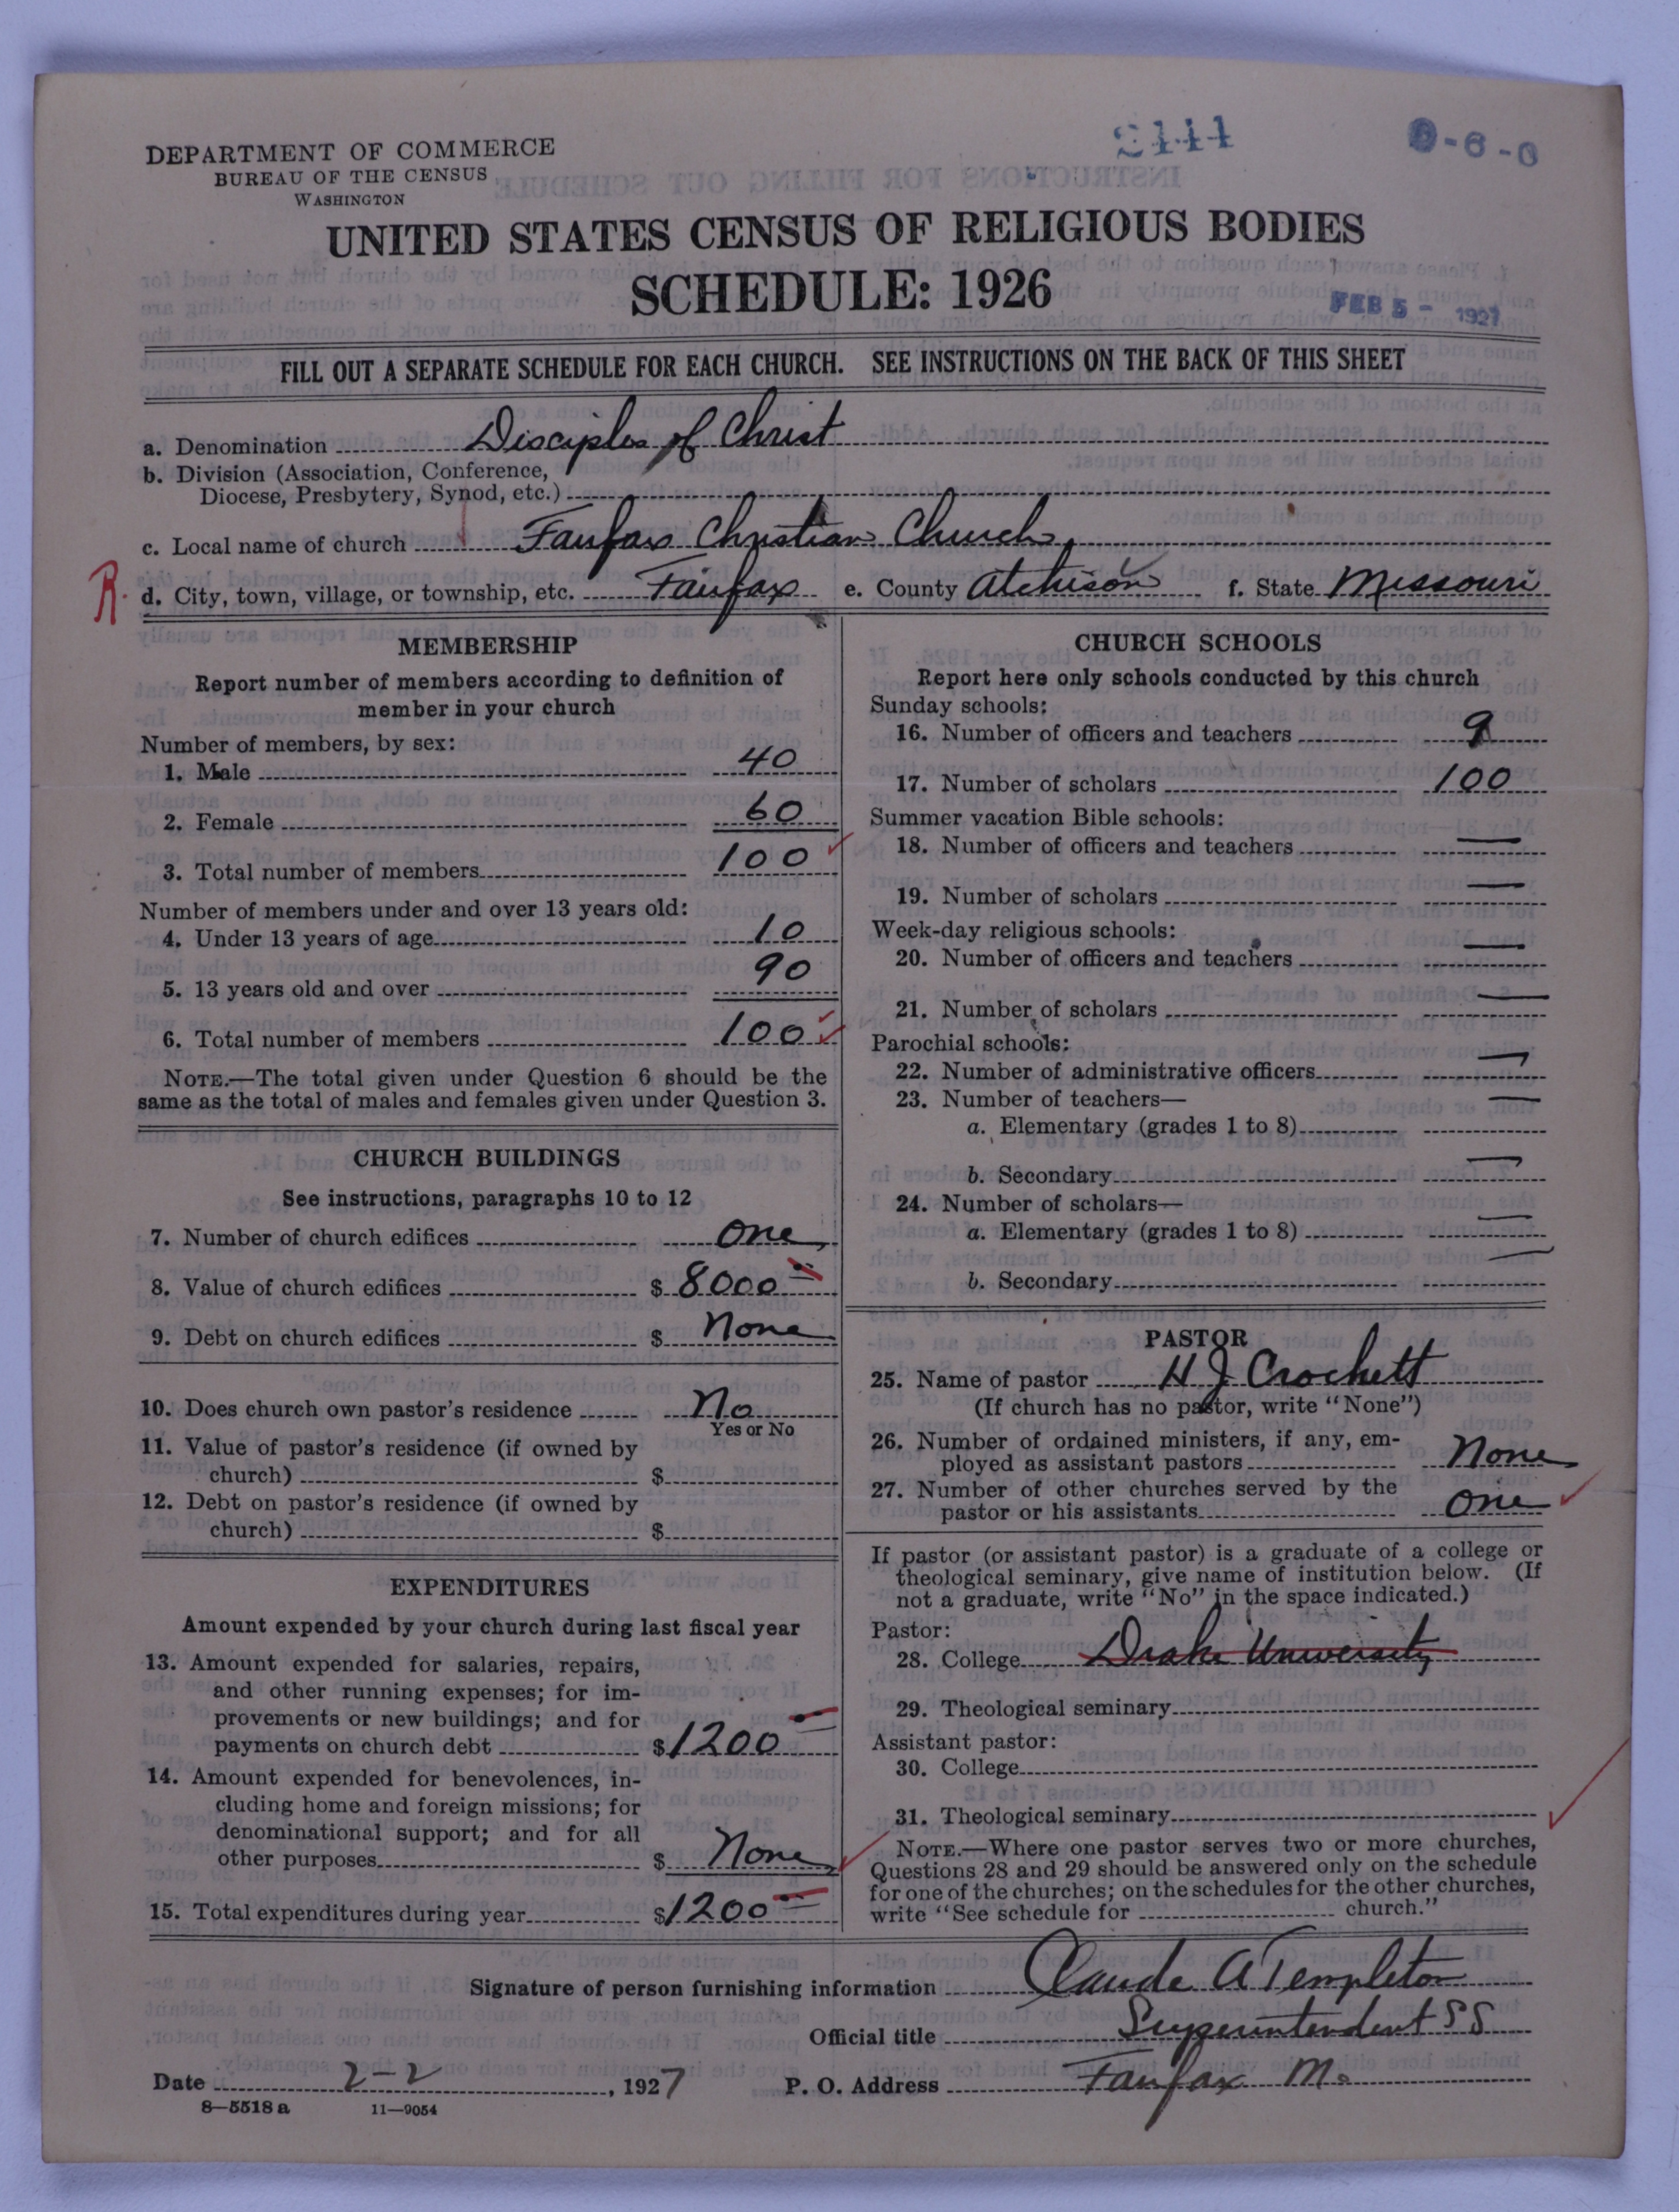 DEPARTMENT OF COMMERCE
BUREAU OF THE CENSUS
WASHINGTON
2444
0-6-0
UNITED STATES CENSUS OF RELIGIOUS BODIES
SCHEDULE: 1926
FEB 5 - 1927
FILL OUT A SEPARATE SCHEDULE FOR EACH CHURCH. SEE INSTRUCTIONS ON THE BACK OF THIS SHEET
a. Denomination Disciples of Christ
b. Division (Association, Conference,
Diocese, Presbytery, Synod, etc.)
c. Local name of church Fairfax Christian Church
R. d. City, town, village, or township, etc. Fairfax e. County Atchison f. State Missouri
MEMBERSHIP
Report number of members according to definition of
member in your church
Number of members, by sex:
1. Male 40
2. Female 60
3. Total number of members 100
Number of members under and over 13 years old:
4. Under 13 years of age 10
5. 13 years old and over 90
6. Total number of members 100
NOTE.—The total given under Question 6 should be the
same as the total of males and females given under Question 3.
CHURCH BUILDINGS
See instructions, paragraphs 10 to 12
7. Number of church edifices one
8. Value of church edifices $ 8000
9. Debt on church edifices $ None
10. Does church own pastor's residence No
Yes or No
11. Value of pastor's residence (if owned by
church) $
12. Debt on pastor's residence (if owned by
church) $
EXPENDITURES
Amount expended by your church during last fiscal year
13. Amount expended for salaries, repairs,
and other running expenses; for im-
provements or new buildings; and for
payments on church debt $1200
14. Amount expended for benevolences, in-
cluding home and foreign missions; for
denominational support; and for all
other purposes $ None
15. Total expenditures during year $1200
CHURCH SCHOOLS
Report here only schools conducted by this church
Sunday schools:
16. Number of officers and teachers 9
17. Number of scholars 100
Summer vacation Bible schools:
18. Number of officers and teachers —
19. Number of scholars —
Week-day religious schools:
20. Number of officers and teachers —
21. Number of scholars —
Parochial schools:
22. Number of administrative officers —
23. Number of teachers— —
a. Elementary (grades 1 to 8)
b. Secondary —
24. Number of scholars—
a. Elementary (grades 1 to 8) —
b. Secondary —
PASTOR
25. Name of pastor H J Crockett
(If church has no pastor, write "None")
26. Number of ordained ministers, if any, em-
ployed as assistant pastors None
27. Number of other churches served by the
pastor or his assistants one
If pastor (or assistant pastor) is a graduate of a college or
theological seminary, give name of institution below. (If
not a graduate, write "No" in the space indicated.)
Pastor:
28. College Drake University
29. Theological seminary
Assistant pastor:
30. College
31. Theological seminary
NOTE.—Where one pastor serves two or more churches,
Questions 28 and 29 should be answered only on the schedule
for one of the churches; on the schedules for the other churches,
write "See schedule for church."
Signature of person furnishing information Claude A Templeton
Official title Superintendent SS
Date 2-2, 1927 P. O. Address Fairfax Mo
8—5518 a 11—9054